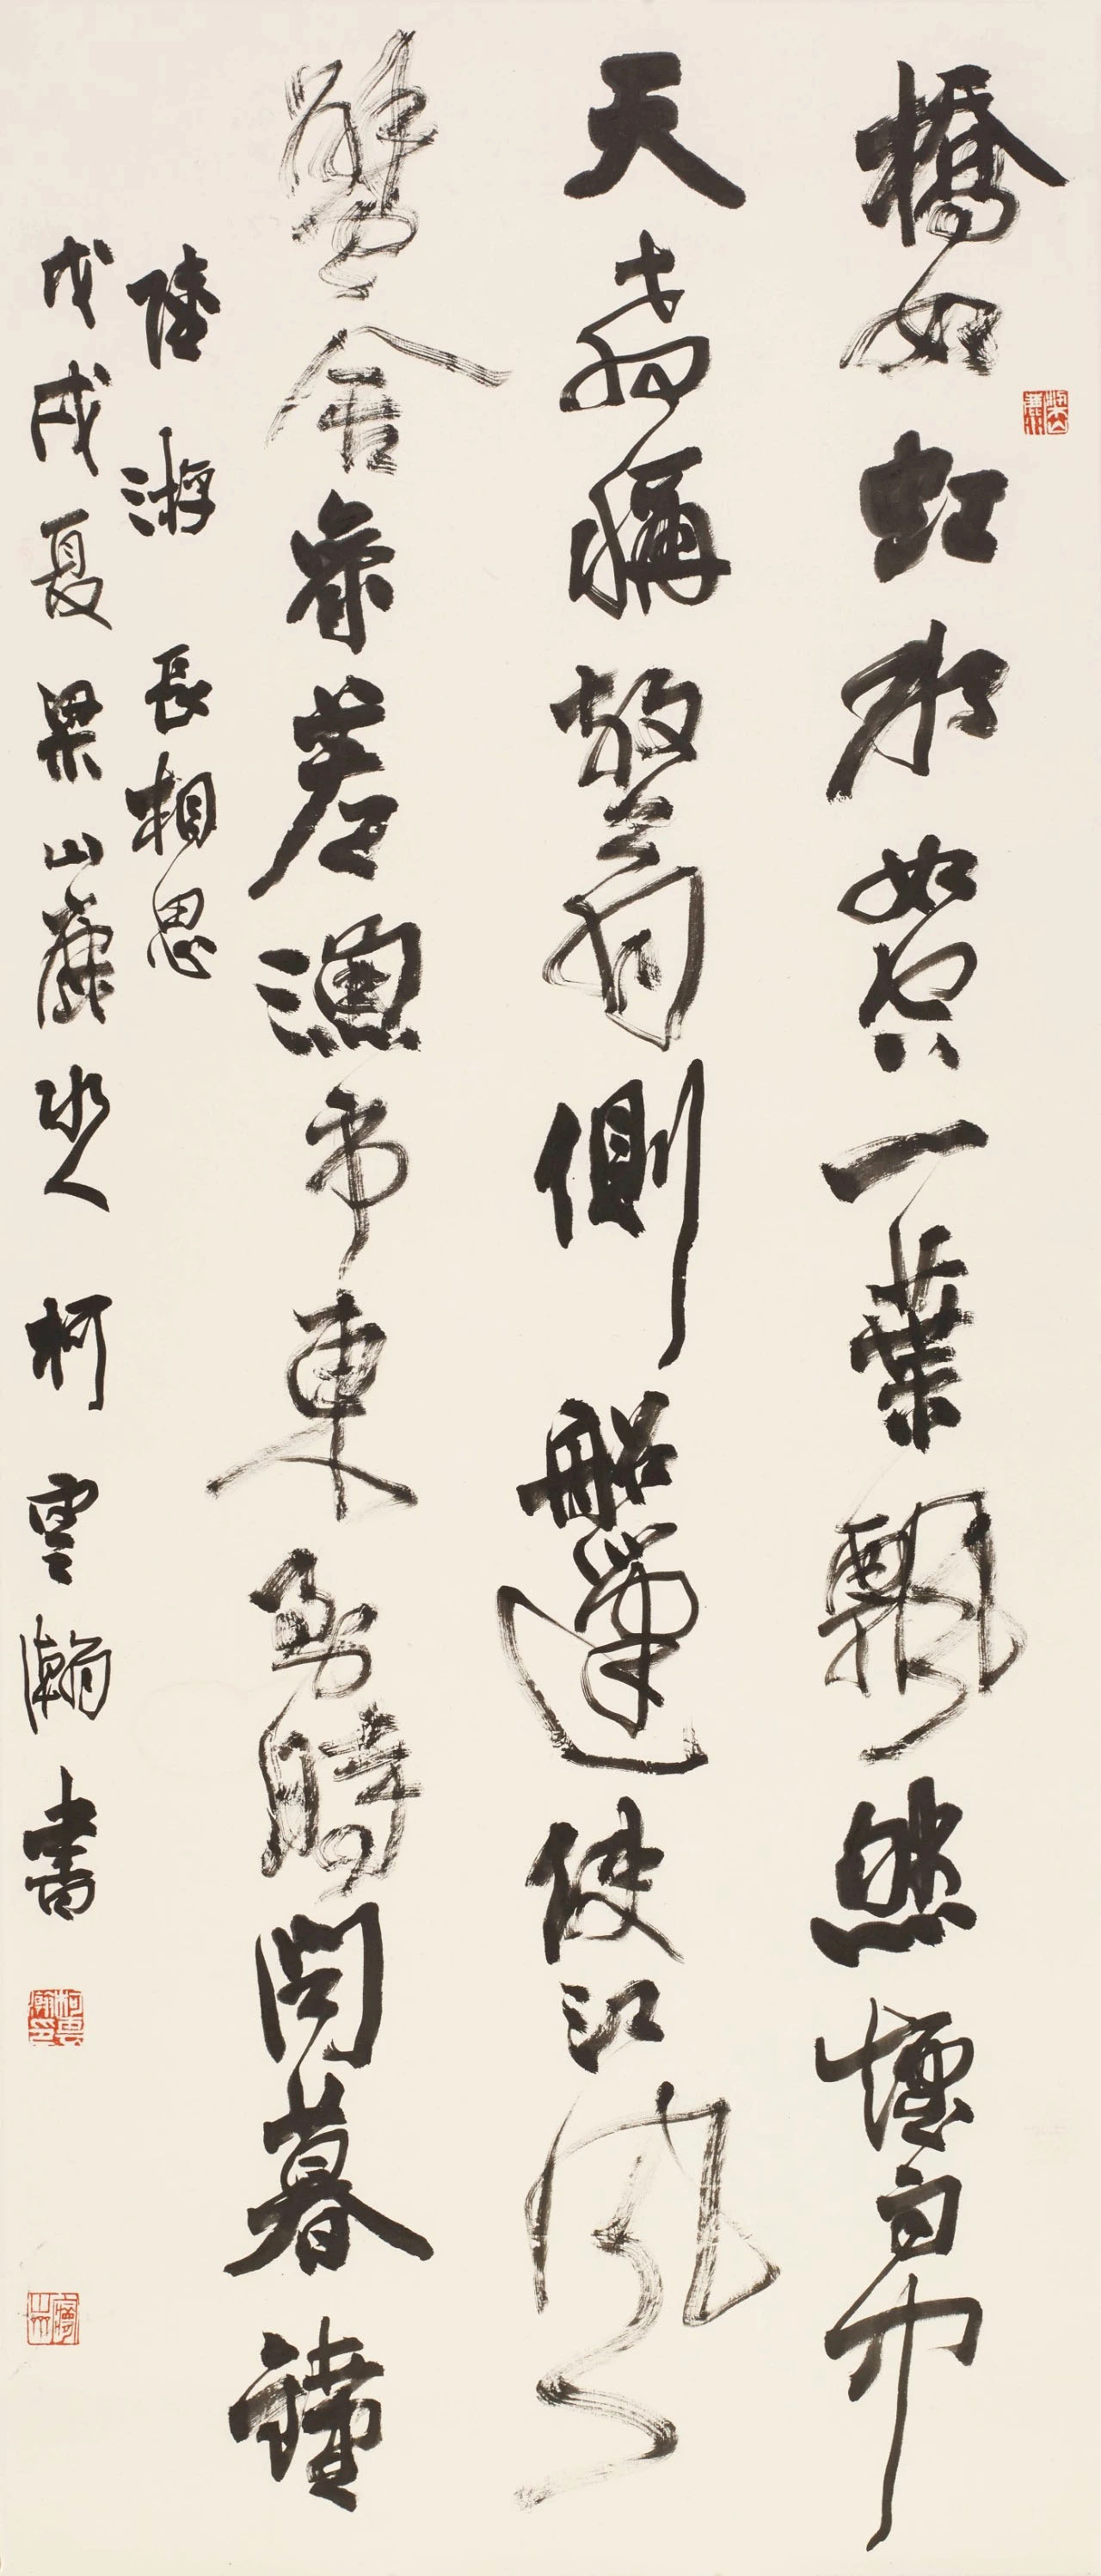 橋如虹水如空一葉飄然煙雨中
天教稱放翁側船篷使江風
蟹舍參差漁市東到時聞暮鐘
陸游 長相思
戊戌夏梁山麓水人 柯雲瀚書
柯雲瀚印